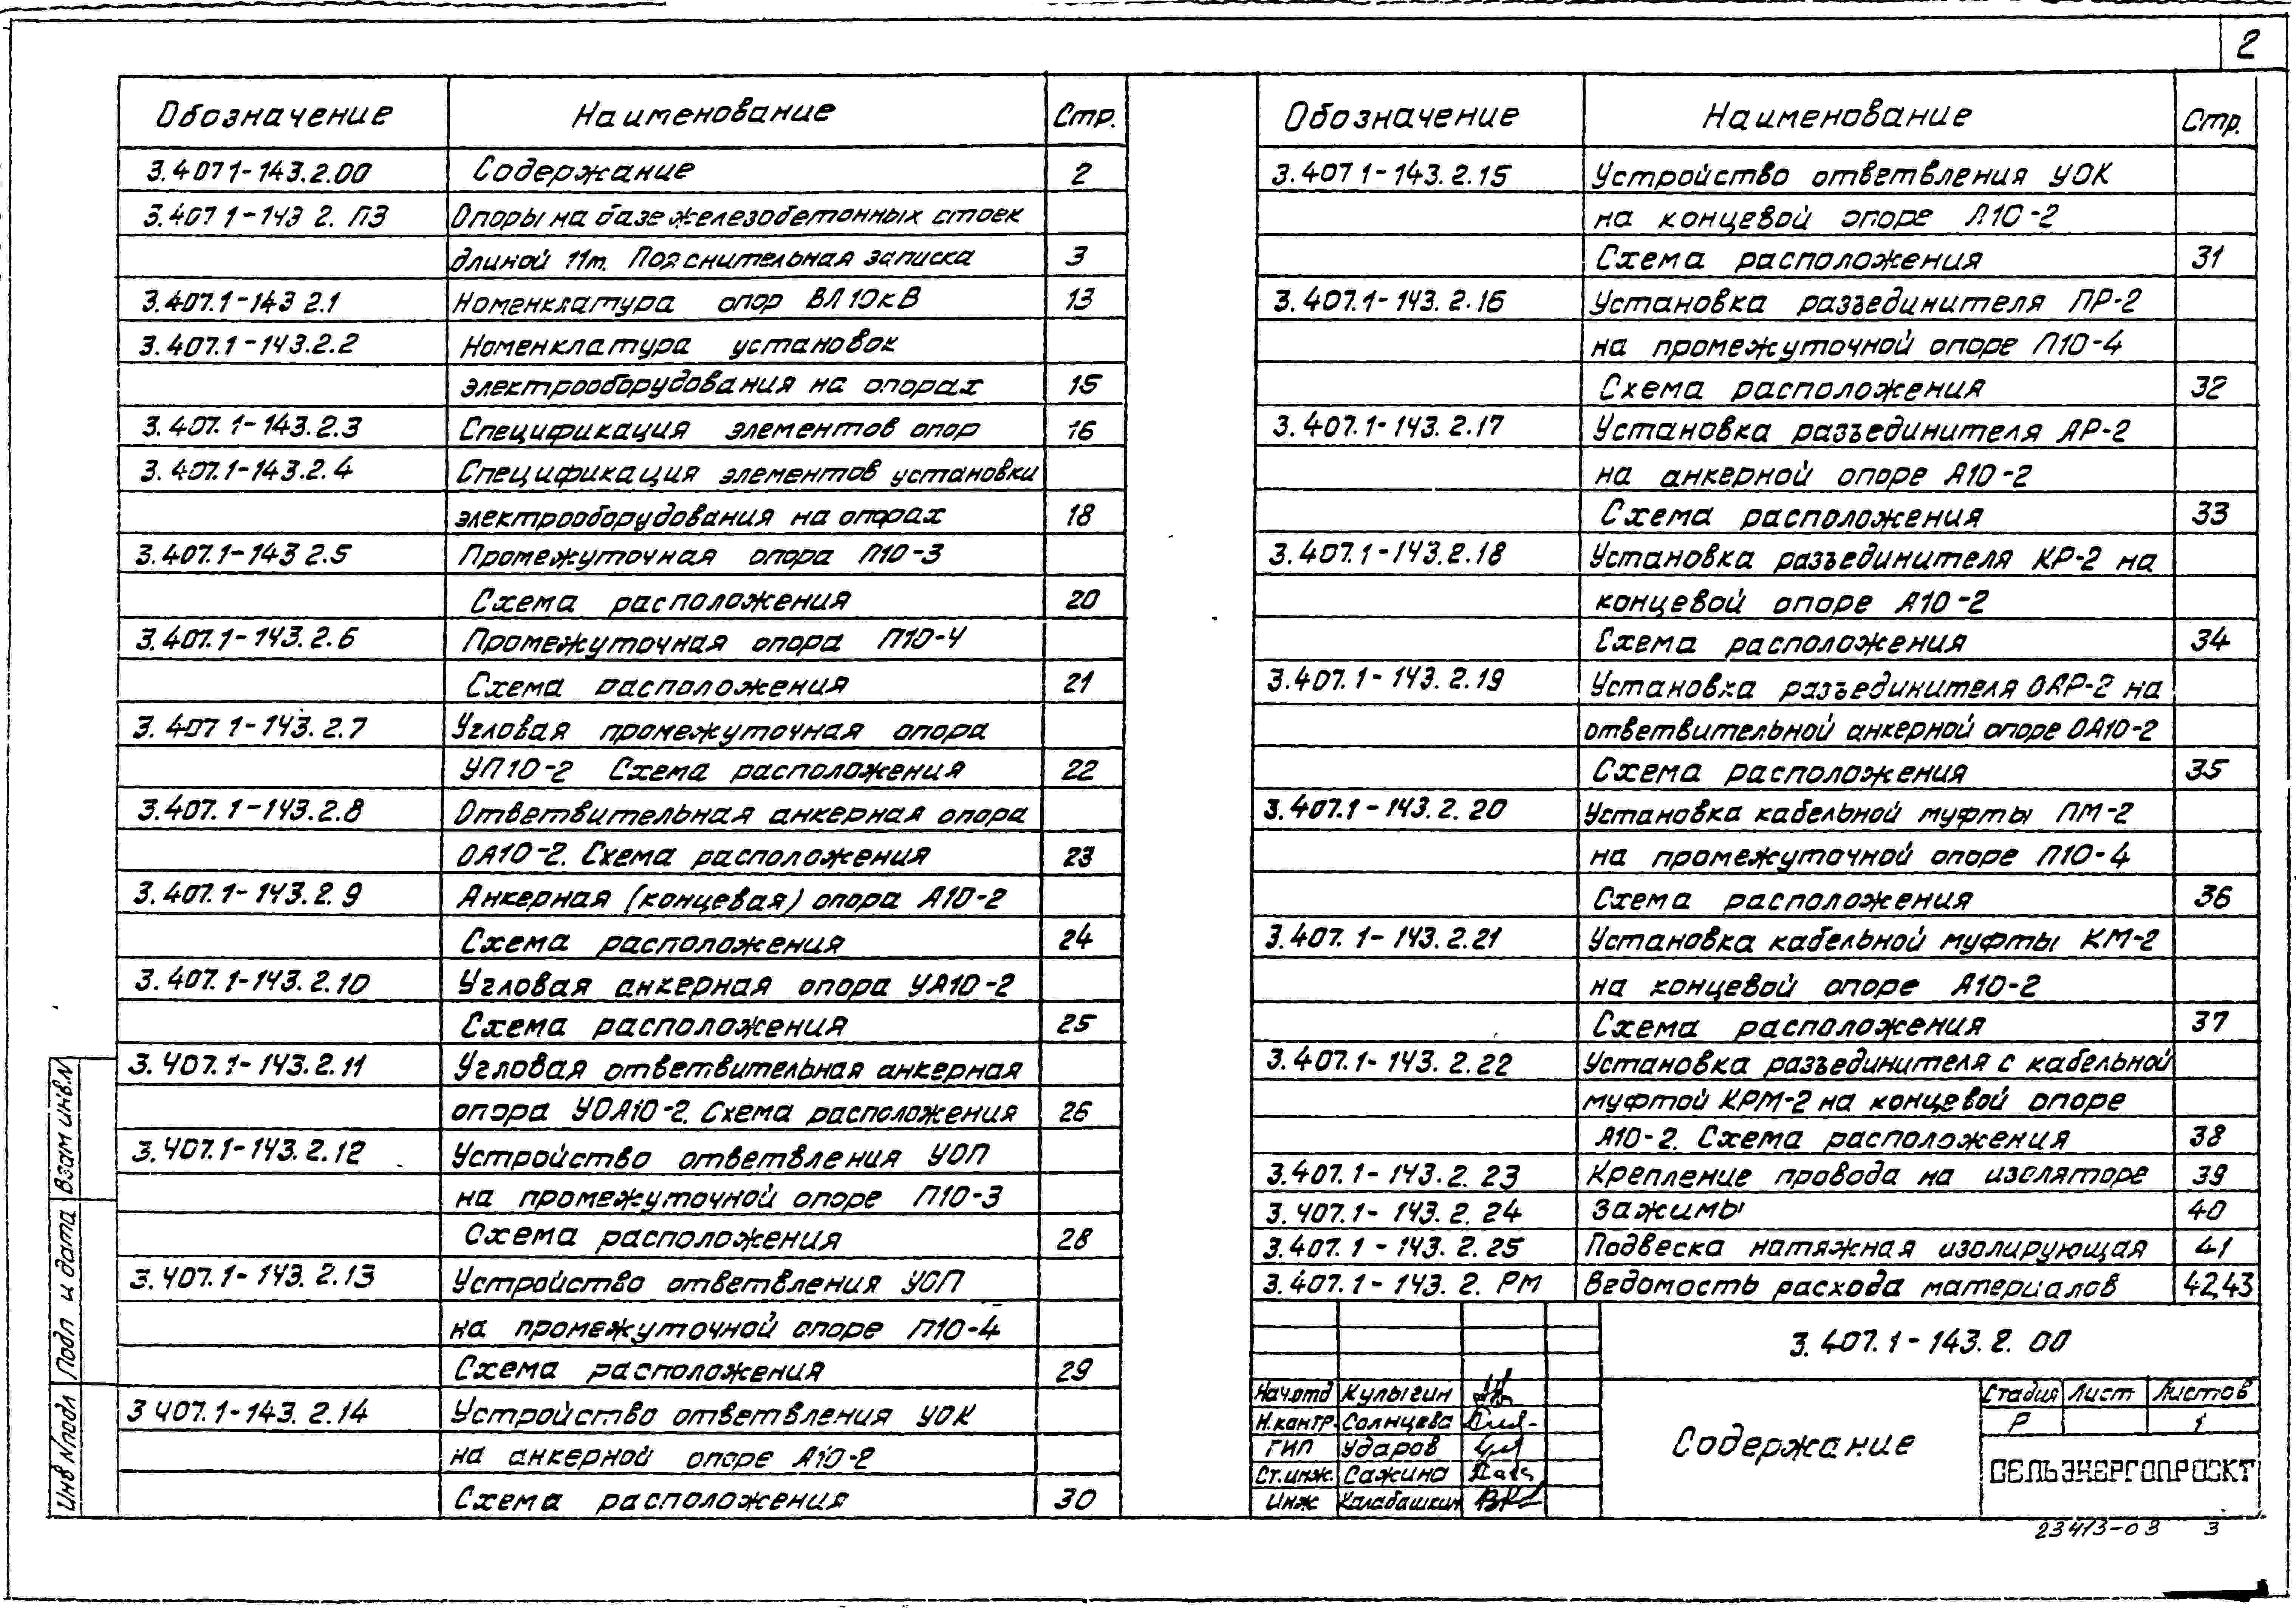 2
Обозначение Наименование Стр.
3.407 1-143.2.00 Содержание 2
3.407 1-143 2. ПЗ Опоры на базе железобетонных стоек
длиной 11м. Пояснительная записка 3
3.407.1-143 2.1 Номенклатура опор ВЛ 10кВ 13
3.407.1-143.2.2 Номенклатура установок
электрооборудования на опорах 15
3.407.1-143.2.3 Спецификация элементов опор 16
3.407.1-143.2.4 Спецификация элементов установки
электрооборудования на опорах 18
3.407.1-143 2.5 Промежуточная опора П10-3
Схема расположения 20
3.407.1-143.2.6 Промежуточная опора П10-4
Схема расположения 21
3.407 1-143.2.7 Угловая промежуточная опора
УП10-2 Схема расположения 22
3.407.1-143.2.8 Ответвительная анкерная опора
ОА10-2. Схема расположения 23
3.407.1-143.2.9 Анкерная (концевая) опора А10-2
Схема расположения 24
3.407.1-143.2.10 Угловая анкерная опора УА10-2
Схема расположения 25
3.407.1-143.2.11 Угловая ответвительная анкерная
опора УОА10-2. Схема расположения 26
3.407.1-143.2.12 Устройство ответвления УОП
на промежуточной опоре П10-3
Схема расположения 28
3.407.1-143.2.13 Устройство ответвления УОП
на промежуточной опоре П10-4
Схема расположения 29
3 407.1-143.2.14 Устройство ответвления УОК
на анкерной опоре А10-2
Схема расположения 30
Обозначение Наименование Стр.
3.407 1-143.2.15 Устройство ответвления УОК
на концевой опоре А10-2
Схема расположения 31
3.407.1-143.2.16 Установка разъединителя ПР-2
на промежуточной опоре П10-4
Схема расположения 32
3.407.1-143.2.17 Установка разъединителя АР-2
на анкерной опоре А10-2
Схема расположения 33
3.407.1-143.2.18 Установка разъединителя КР-2 на
концевой опоре А10-2
Схема расположения 34
3.407.1-143.2.19 Установка разъединителя ОАР-2 на
ответвительной анкерной опоре ОА10-2
Схема расположения 35
3.407.1-143.2.20 Установка кабельной муфты ПМ-2
на промежуточной опоре П10-4
Схема расположения 36
3.407.1-143.2.21 Установка кабельной муфты КМ-2
на концевой опоре А10-2
Схема расположения 37
3.407.1-143.2.22 Установка разъединителя с кабельной
муфтой КРМ-2 на концевой опоре
А10-2. Схема расположения 38
3.407.1-143.2.23 Крепление провода на изоляторе 39
3.407.1-143.2.24 Зажимы 40
3.407.1-143.2.25 Подвеска натяжная изолирующая 41
3.407.1-143.2.РМ Ведомость расхода материалов 42,43
3.407.1-143.2.00
Нач.отд Кулыгин
Н.контр. Солнцева
ГИП Ударов
Ст.инж. Сажина
Инж Калабашкин
Содержание
Стадия Лист Листов
Р 1
СЕЛЬЭНЕРГОПРОЕКТ
23413-03 3
Инв №подл Подп и дата Взам инв.N